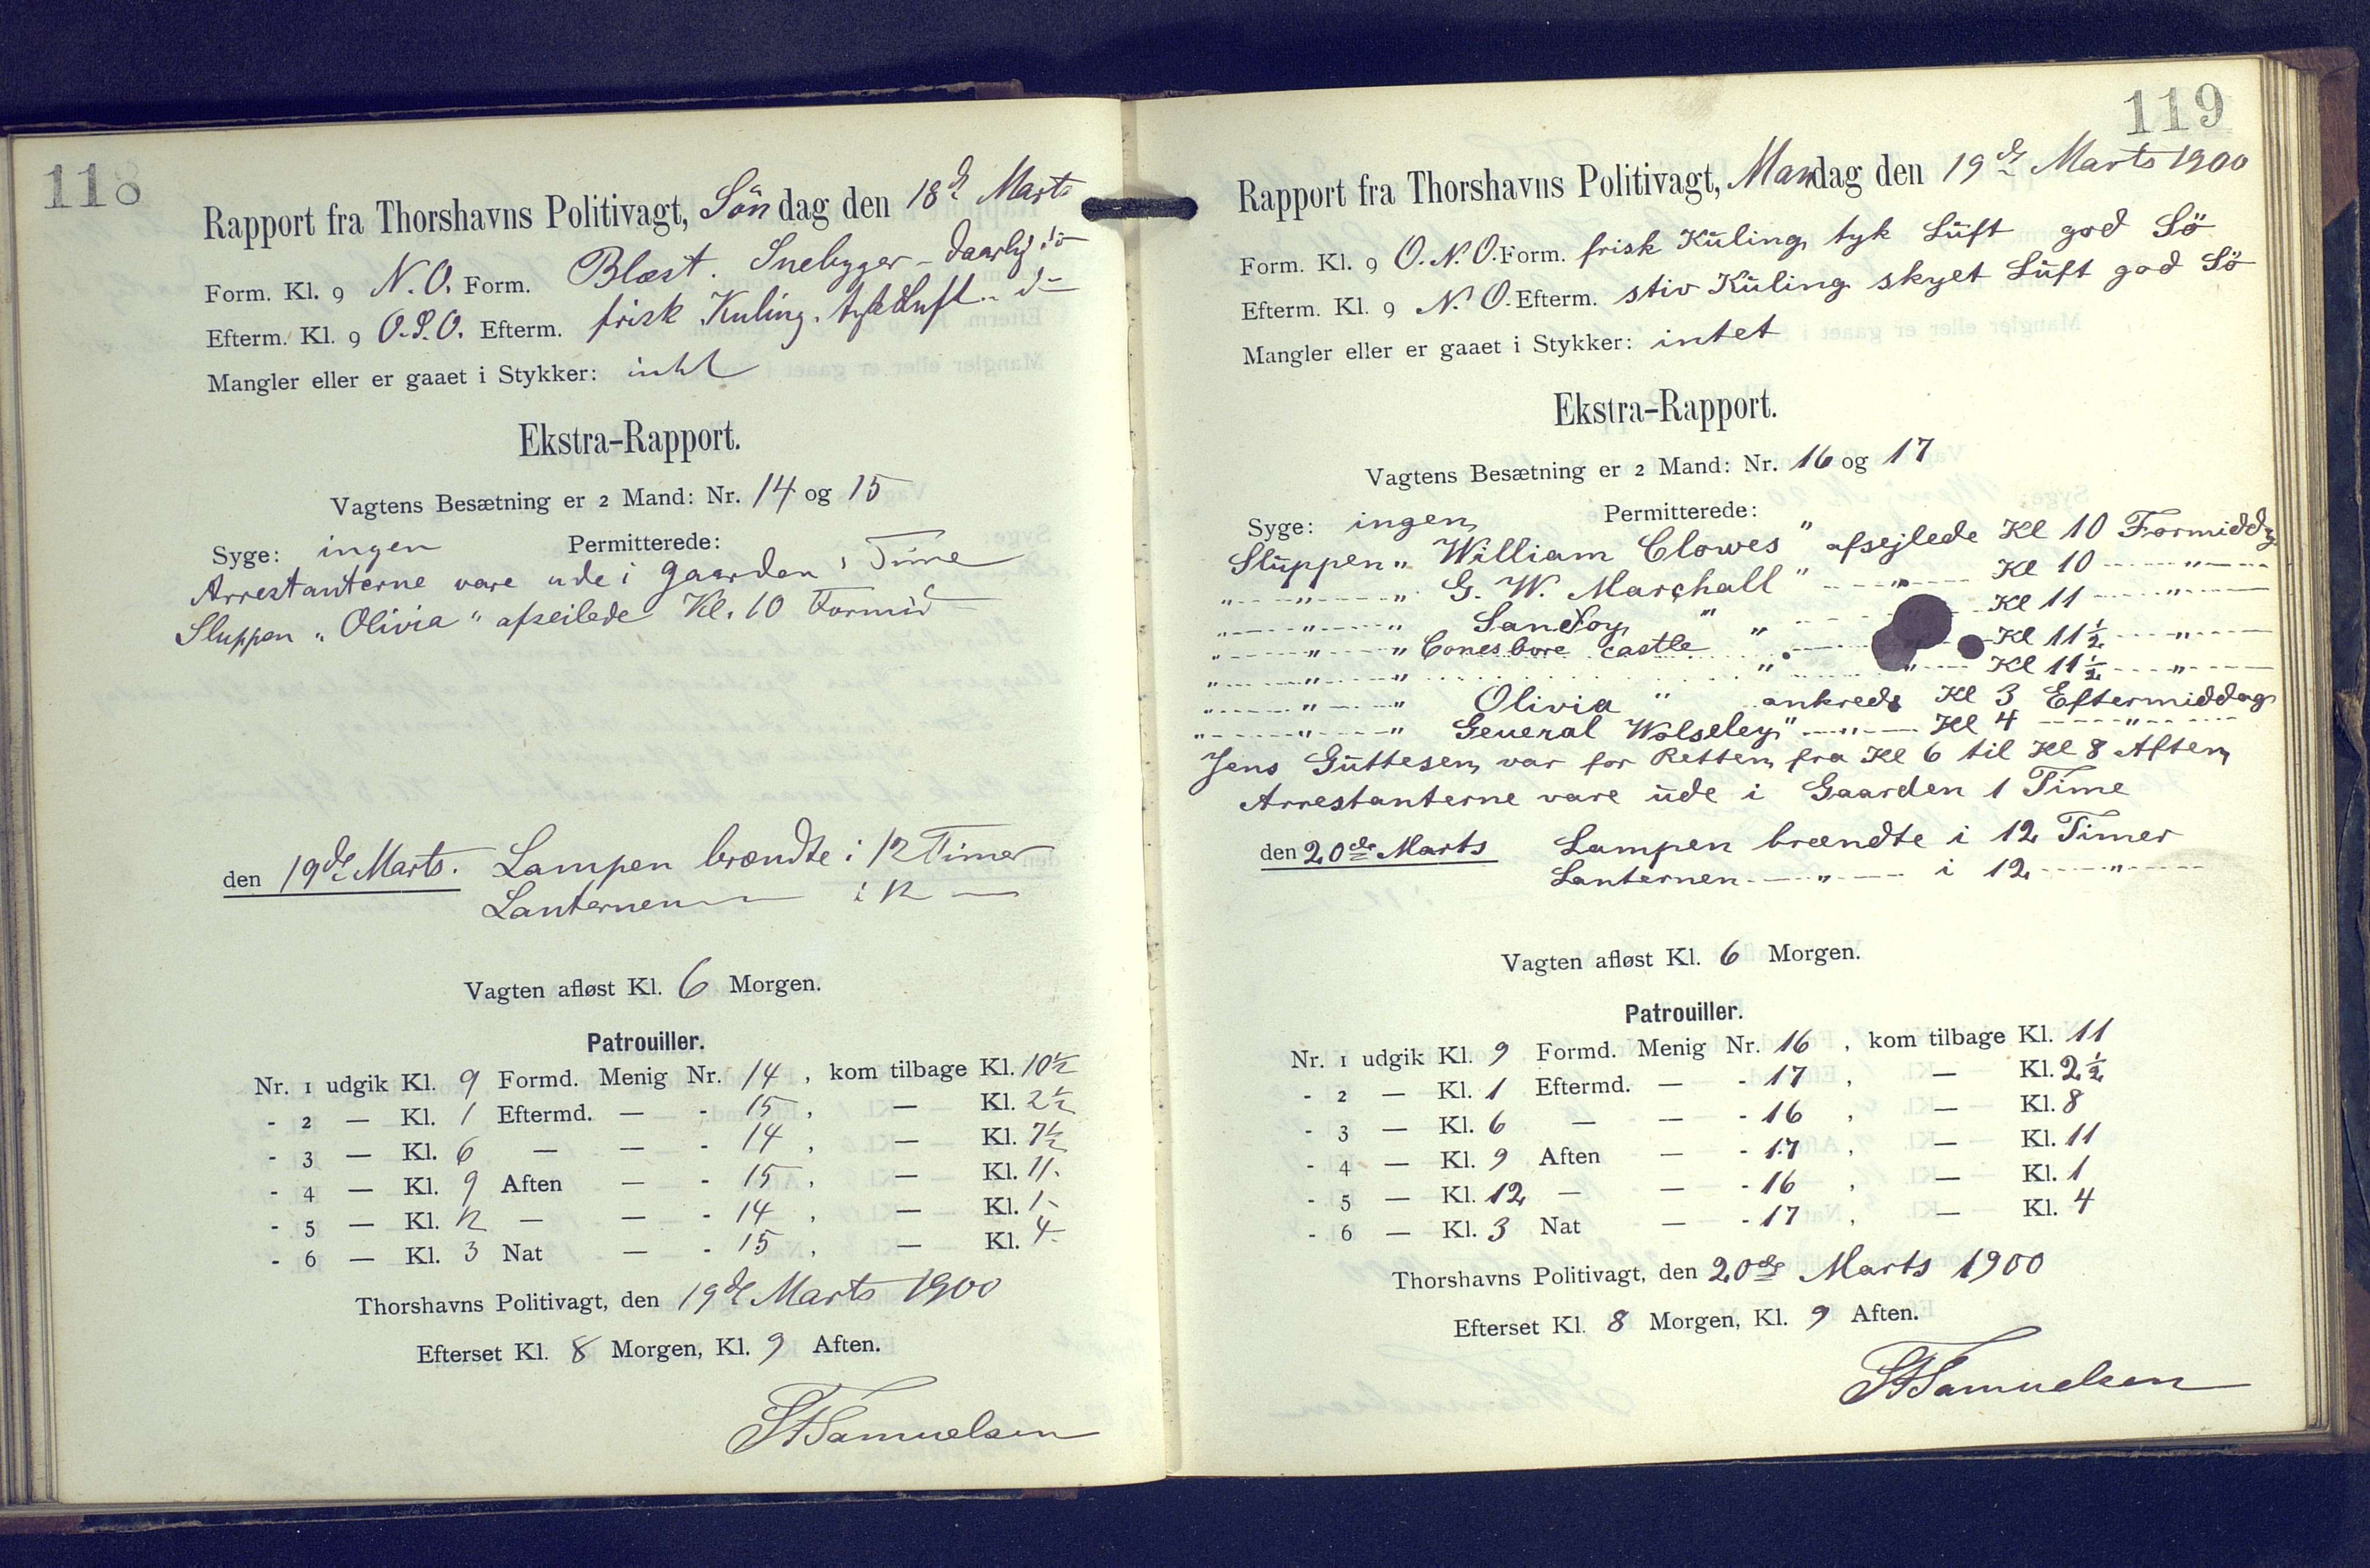 118
Rapport fra Thorshavns Politivagt, Søndag den 18de Marts
Form. Kl. 9 N.O. Form. Blæst. Snebyger - daarlig Sö
Efterm. Kl. 9 O.S.O. Efterm. frisk Kuling. tyk Luft " do
Mangler eller er gaaet i Stykker: intet
Ekstra-Rapport.
Vagtens Besætning er 2 Mand: Nr. 14 og 15
Syge: ingen Permitterede:
Arrestanterne vare ude i Gaarden 1 Time
Sluppen „Olivia" afseilede Kl. 10 Formid
den 19de Marts. Lampen brændte i 12 Timer
Lanternen — i 12 —
Vagten afløst Kl. 6 Morgen.
Patrouiller.
Nr. 1 udgik Kl. 9 Formd. Menig Nr. 14, kom tilbage Kl. 10½
- 2 — Kl. 1 Eftermd. — - 15, — Kl. 2½
- 3 — Kl. 6 — — - 14, — Kl. 7½
- 4 — Kl. 9 Aften — - 15, — Kl. 11.
- 5 — Kl. 12 — — - 14, — Kl. 1-
- 6 — Kl. 3 Nat — - 15, — Kl. 4-
Thorshavns Politivagt, den 19de Marts 1900
Efterset Kl. 8 Morgen, Kl. 9 Aften.
Samuelsen
119
Rapport fra Thorshavns Politivagt, Mandag den 19de Marts 1900
Form. Kl. 9 O.N.O. Form. frisk Kuling tyk Luft god Sö
Efterm. Kl. 9 N.O. Efterm. stiv Kuling skyet Luft god Sö
Mangler eller er gaaet i Stykker: intet
Ekstra-Rapport.
Vagtens Besætning er 2 Mand: Nr. 16 og 17
Syge: ingen Permitterede:
Sluppen „ William Clowes " afsejlede Kl 10 Formiddg
" " " G. W. Marchall " — " — Kl 10 — " —
" " " Sandoy " — Kl 11 — " —
" " " Conesbore castle " — " — Kl 11½ — " —
" " " " " Kl 11½ — " —
" " " Olivia " ankrede Kl 3 Eftermiddag
" " " General Wolseley " — " — Kl 4 — " —
Jens Guttesen var for Retten fra Kl 6 til Kl 8 Aften
Arrestanterne vare ude i Gaarden 1 Time
den 20de Marts Lampen brændte i 12 Timer
Lanternen — " — i 12 — " —
Vagten afløst Kl. 6 Morgen.
Patrouiller.
Nr. 1 udgik Kl. 9 Formd. Menig Nr. 16, kom tilbage Kl. 11
- 2 — Kl. 1 Eftermd. — - 17, — Kl. 2½
- 3 — Kl. 6 — — - 16, — Kl. 8
- 4 — Kl. 9 Aften — - 17, — Kl. 11
- 5 — Kl. 12 — — - 16, — Kl. 1
- 6 — Kl. 3 Nat — - 17, — Kl. 4
Thorshavns Politivagt, den 20de Marts 1900
Efterset Kl. 8 Morgen, Kl. 9 Aften.
Samuelsen